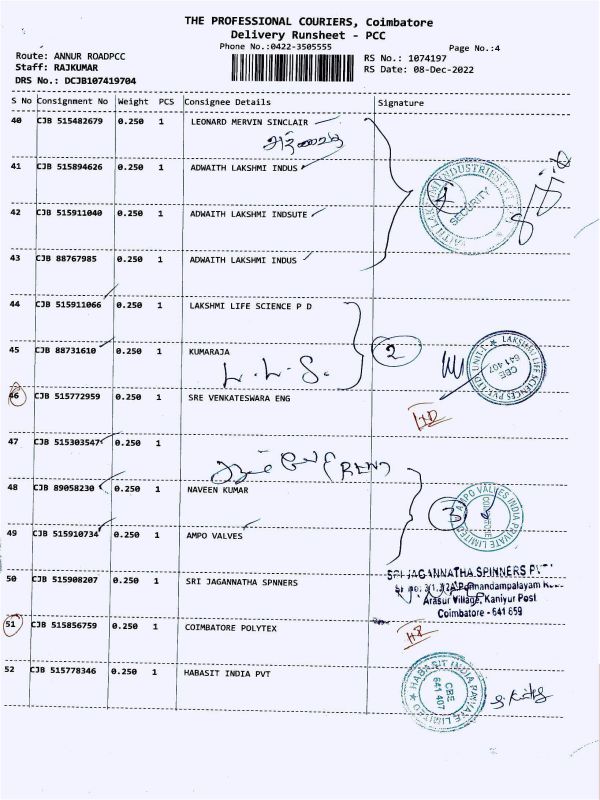 THE PROFESSIONAL COURIERS, Coimbatore
Delivery Runsheet - PCC
Phone No.:0422-3505555
Page No.:4
Route: ANNUR ROADPCC
RS No.: 1074197
Staff: RAJKUMAR
RS Date: 08-Dec-2022
DRS No.: DCJB107419704
S No Consignment No Weight PCS Consignee Details Signature
40 CJB 515482679 0.250 1 LEONARD MERVIN SINCLAIR
41 CJB 515894626 0.250 1 ADWAITH LAKSHMI INDUS
4
SECURITY
42 CJB 515911040 0.250 1 ADWAITH LAKSHMI INDSUTE
43 CJB 88767985 0.250 1 ADWAITH LAKSHMI INDUS
44 CJB 515911066 0.250 1 LAKSHMI LIFE SCIENCE P D
45 CJB 88731610 0.250 1 KUMARAJA 2
L.L.S.
LAKSHMI LIFE SCIENCES PVT LTD, UNIT-I
CBE
641 407
46 CJB 515772959 0.250 1 SRE VENKATESWARA ENG
47 CJB 515303547 0.250 1
48 CJB 89058230 0.250 1 NAVEEN KUMAR
3
AMPO VALVES INDIA PRIVATE LIMITED
COIMBATORE
49 CJB 515910734 0.250 1 AMPO VALVES
50 CJB 515908207 0.250 1 SRI JAGANNATHA SPNNERS
SRI JAGANNATHA SPINNERS
Arasur Village, Kaniyur Post
Coimbatore - 641 659
51 CJB 515856759 0.250 1 COIMBATORE POLYTEX
52 CJB 515778346 0.250 1 HABASIT INDIA PVT
HABASIT INDIA PRIVATE LIMITED
CBE
641 407